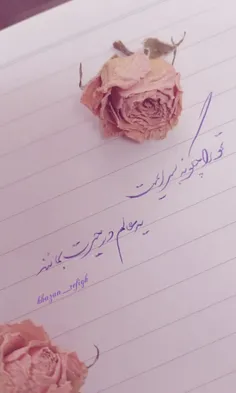 تو را چگونه سرایمت
یه عالم در حیرت بمانند
khazan_zefigh